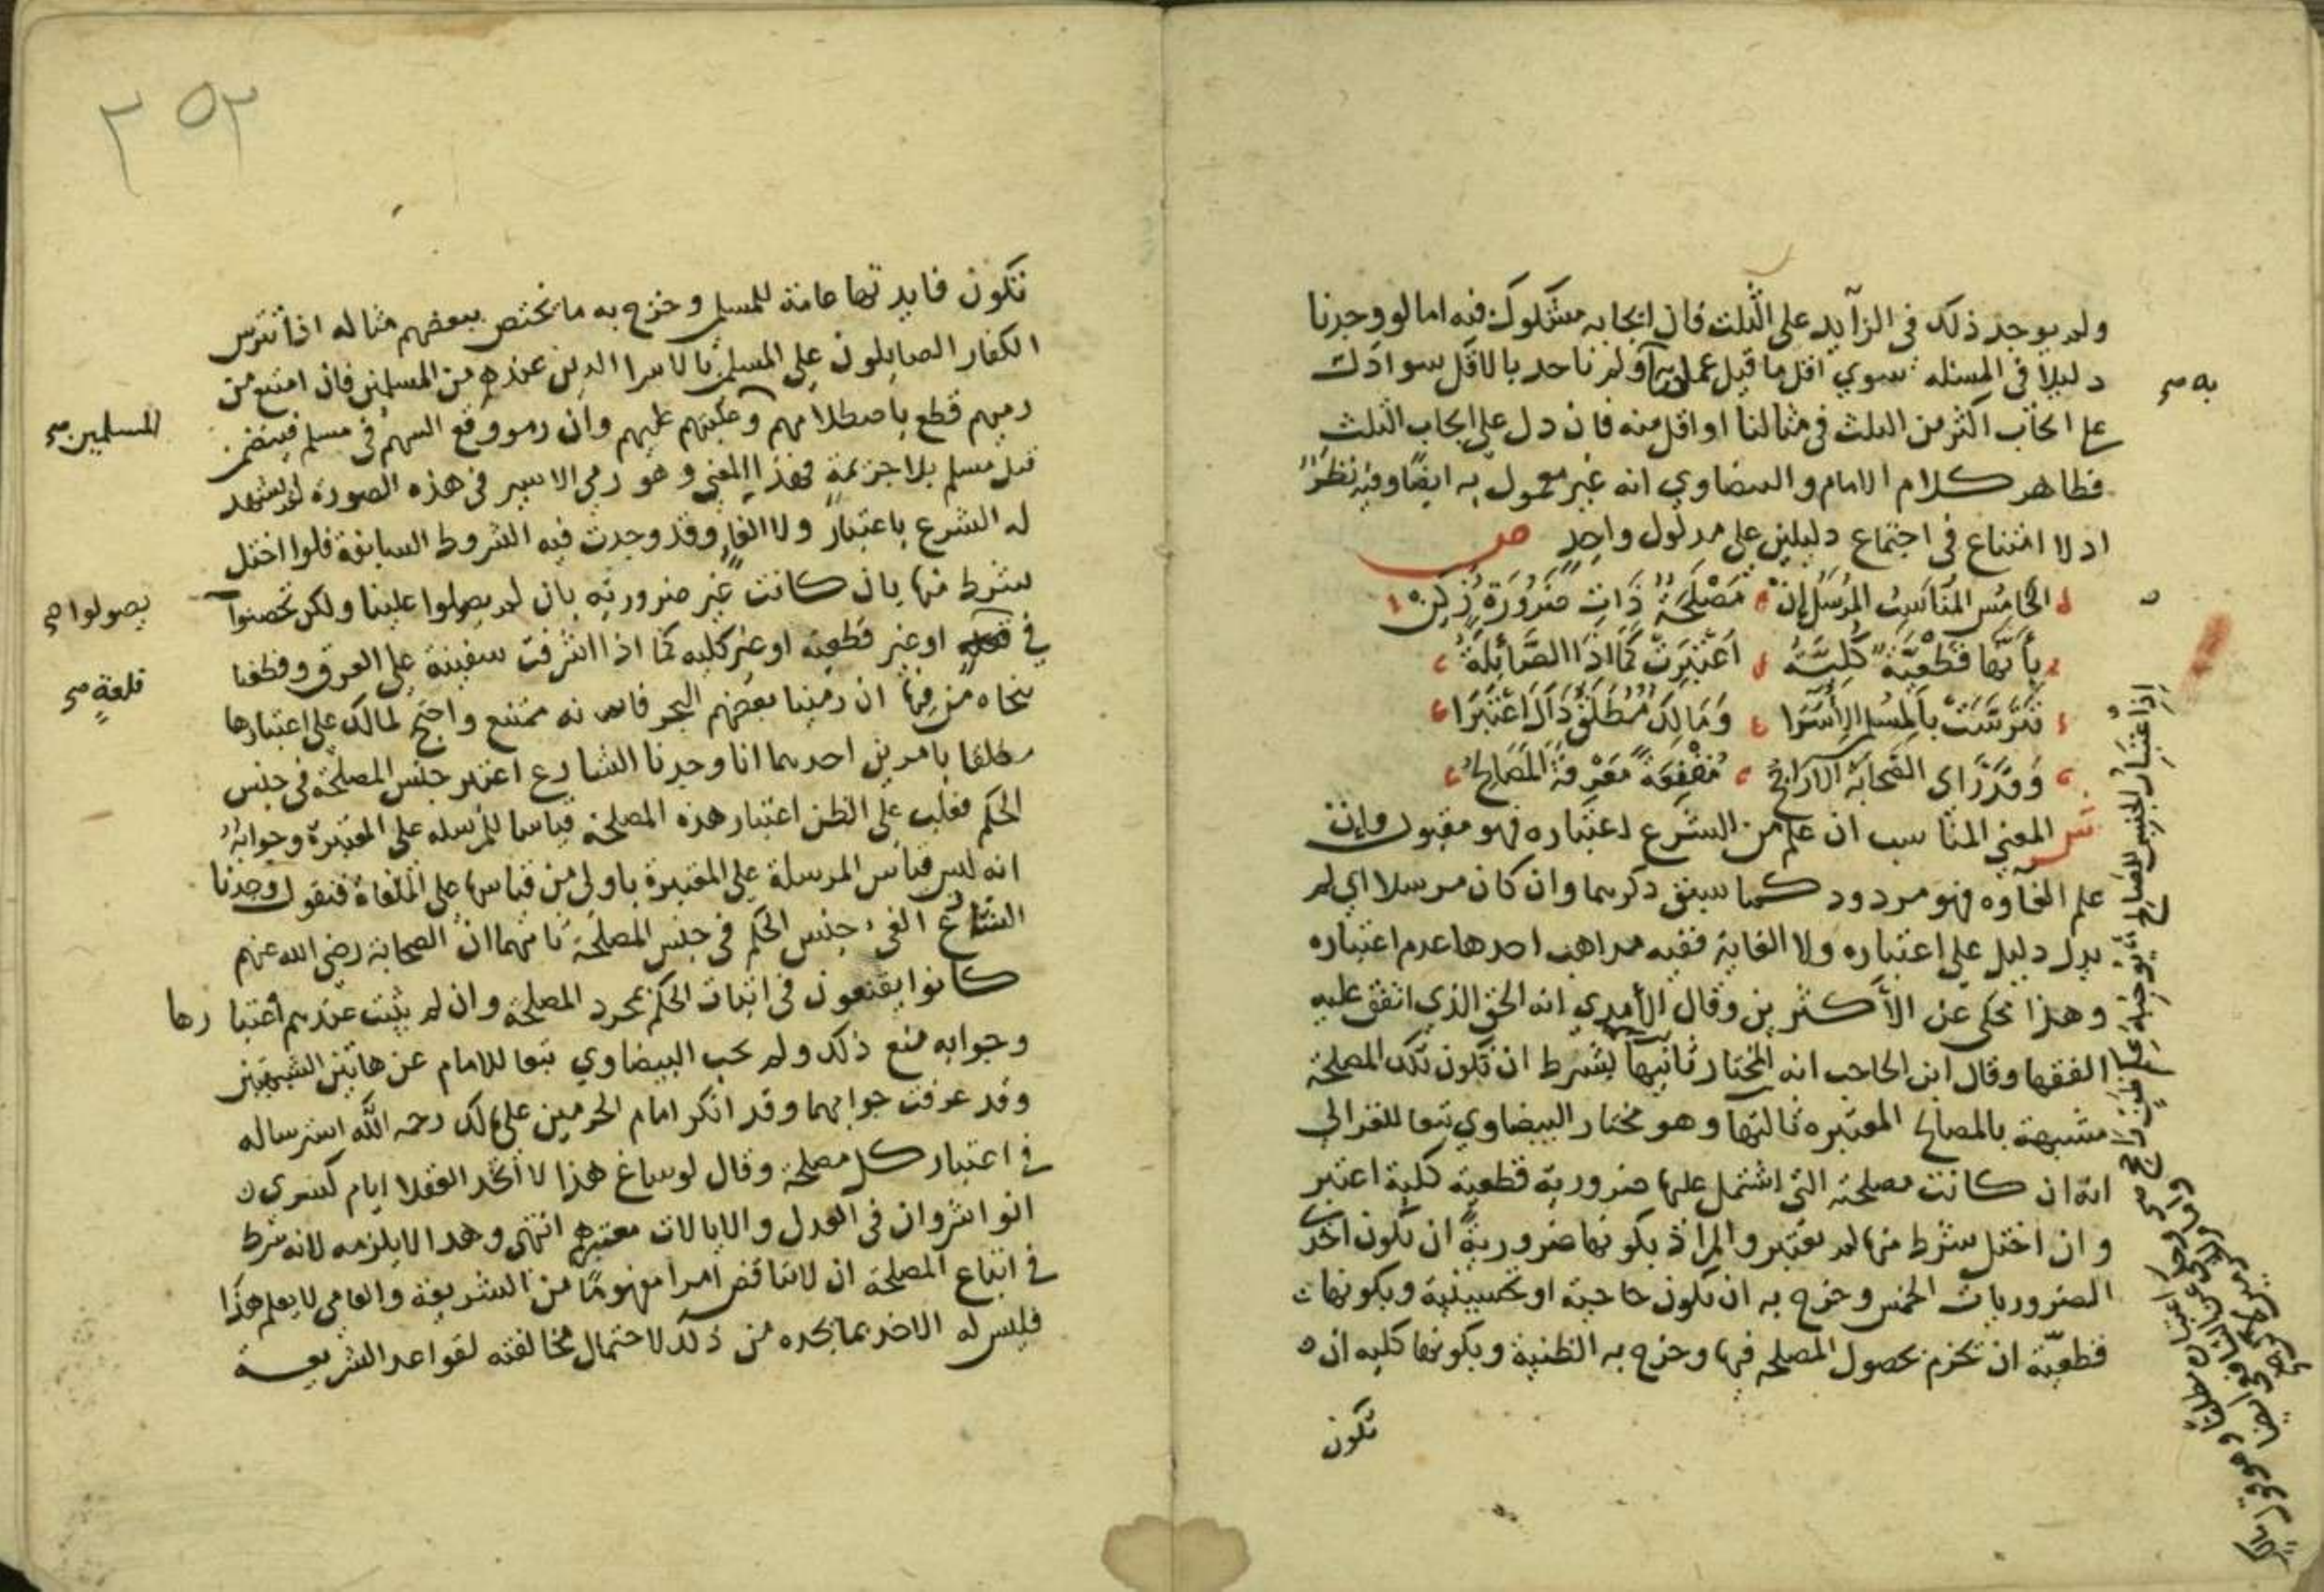 ولم يوجد ذلك في الزآيد على الثلث فان ايجابه مشكوك فيه اما لو وجدنا
دليلا في المسئله سوي اقل ما قيل عملنا ولم ناخد بالاقل سوا دلت
على ايجاب اكثر من الثلث في مثالنا او اقل منه فان دل على ايجاب الثلث
فظاهر كلام الامام والبيضاوي انه غير معمول به ايضًا وفيه نظرٌ
اذ لا امتناع في اجتماع دليلين على مدلول واحدٍ ص
الخامس المناسب المرسل إن مصلحةٌ ذات ضرورةٍ زكن
بأنها قطعيةً كليّةُ اعتبرت كما اذا الصائلة
تترست بالمسلم الأسرا ومالك مطلق ذاك اعتبرا
وقد راى الصحابة
مقنعةً معرفة المصالح
ش المعني المناسب ان علم من الشرع اعتباره فهو مقبول وإن
علم الغاوه فهو مردود كما سبق ذكرهما وان كان مرسلا اي لم
يدل دليل علي اعتباره ولا الغايه ففيه مداهب احدها عدم اعتباره
وهذا محكى عن الأكثرين وقال الأمدي انه الحق الذي اتفق عليه
الفقها وقال ابن الحاجب انه المختار ثانيها بشرط ان تكون تلك المصلحة
مشبهة بالمصالح المعتبره ثالثها وهو مختار البيضاوي تبعا للغزالي
انه ان كانت مصلحته التي اشتمل عليها ضرورية قطعية كلية اعتبر
وان اختل شرط منها لم يعتبر والمراد بكونها ضروريةً ان تكون احدى
الضروريات الخمس وخرج به ان تكون حاجية او تحسينية وبكونها
قطعيّة ان نجزم بحصول المصلحه فيها وخرج به الظنية وبكونها كليه ان
تكون
به صح
٢٥٢
تكون فايدتها عامة للمسلمين وخرج به ما يختص ببعضهم مثاله اذا تترس
الكفار الصايلون على المسلمين بالاسرا الدين عندهم من المسلمين فان امتنع من
رميهم قطع باصطلامهم وغلبتهم عليهم وان رمو وقع السهم في مسلم فيفضي
قتل مسلم بلا جزيمة فهذا المعني وهو رمي الاسير في هذه الصورة لم يشهد
له الشرع باعتبارٍ ولا الغاءٍ وقد وجدت فيه الشروط السابقة فلوا اختل
شرط منها بان كانت غير ضروريه بان لم يصولوا علينا ولكن تحصنوا
في او غير قطعيه او غير كليه كما اذا اشرفت سفينة على الغرق وقطعنا
بنجاه من فيها ان رمينا بعضهم البحر فانه ممتنع واحتج لمالك على اعتبارها
مطلقا بامرين احدهما انا وجدنا الشارع اعتبر جنس المصلحة في جنس
الحكم فغلب على الظن اعتبار هذه المصلحة قياسا للمرسله على المعتبرة وجوابهُ
انه ليس قياس المرسلة علي المعتبرة باولي من قياسها على الملغاة فنقول وجدنا
الشارع الغي جنس الحكم في جنس المصلحة ثانيهما ان الصحابة رضى الله عنهم
كانوا يقنعون في اثبات الحكم بمجرد المصلحة وان لم يثبت عندهم اعتبارها
وجوابه منع ذلك ولم يجب البيضاوي تبعا للامام عن هاتين الشبهتين
وقد عرفت جوابهما وقد انكر امام الحرمين على مالك رحمه الله استرساله
في اعتبار كل مصلحة وقال لو ساغ هذا لاتخد العقلا ايام كسرى
انو اشروان في العدل والايالات معتبرهم انتهى وهدا لا يلزمه لانه شرط
في اتباع المصلحة ان لا تناقض امرا مفهومًا من الشريعة والعامي لا يعلم هذا
فليس له الاخد بما يجده من ذلك لاحتمال مخالفته لقواعد الشريعة
المسلمين صح
يصولوا صح
قلعةٍ صح